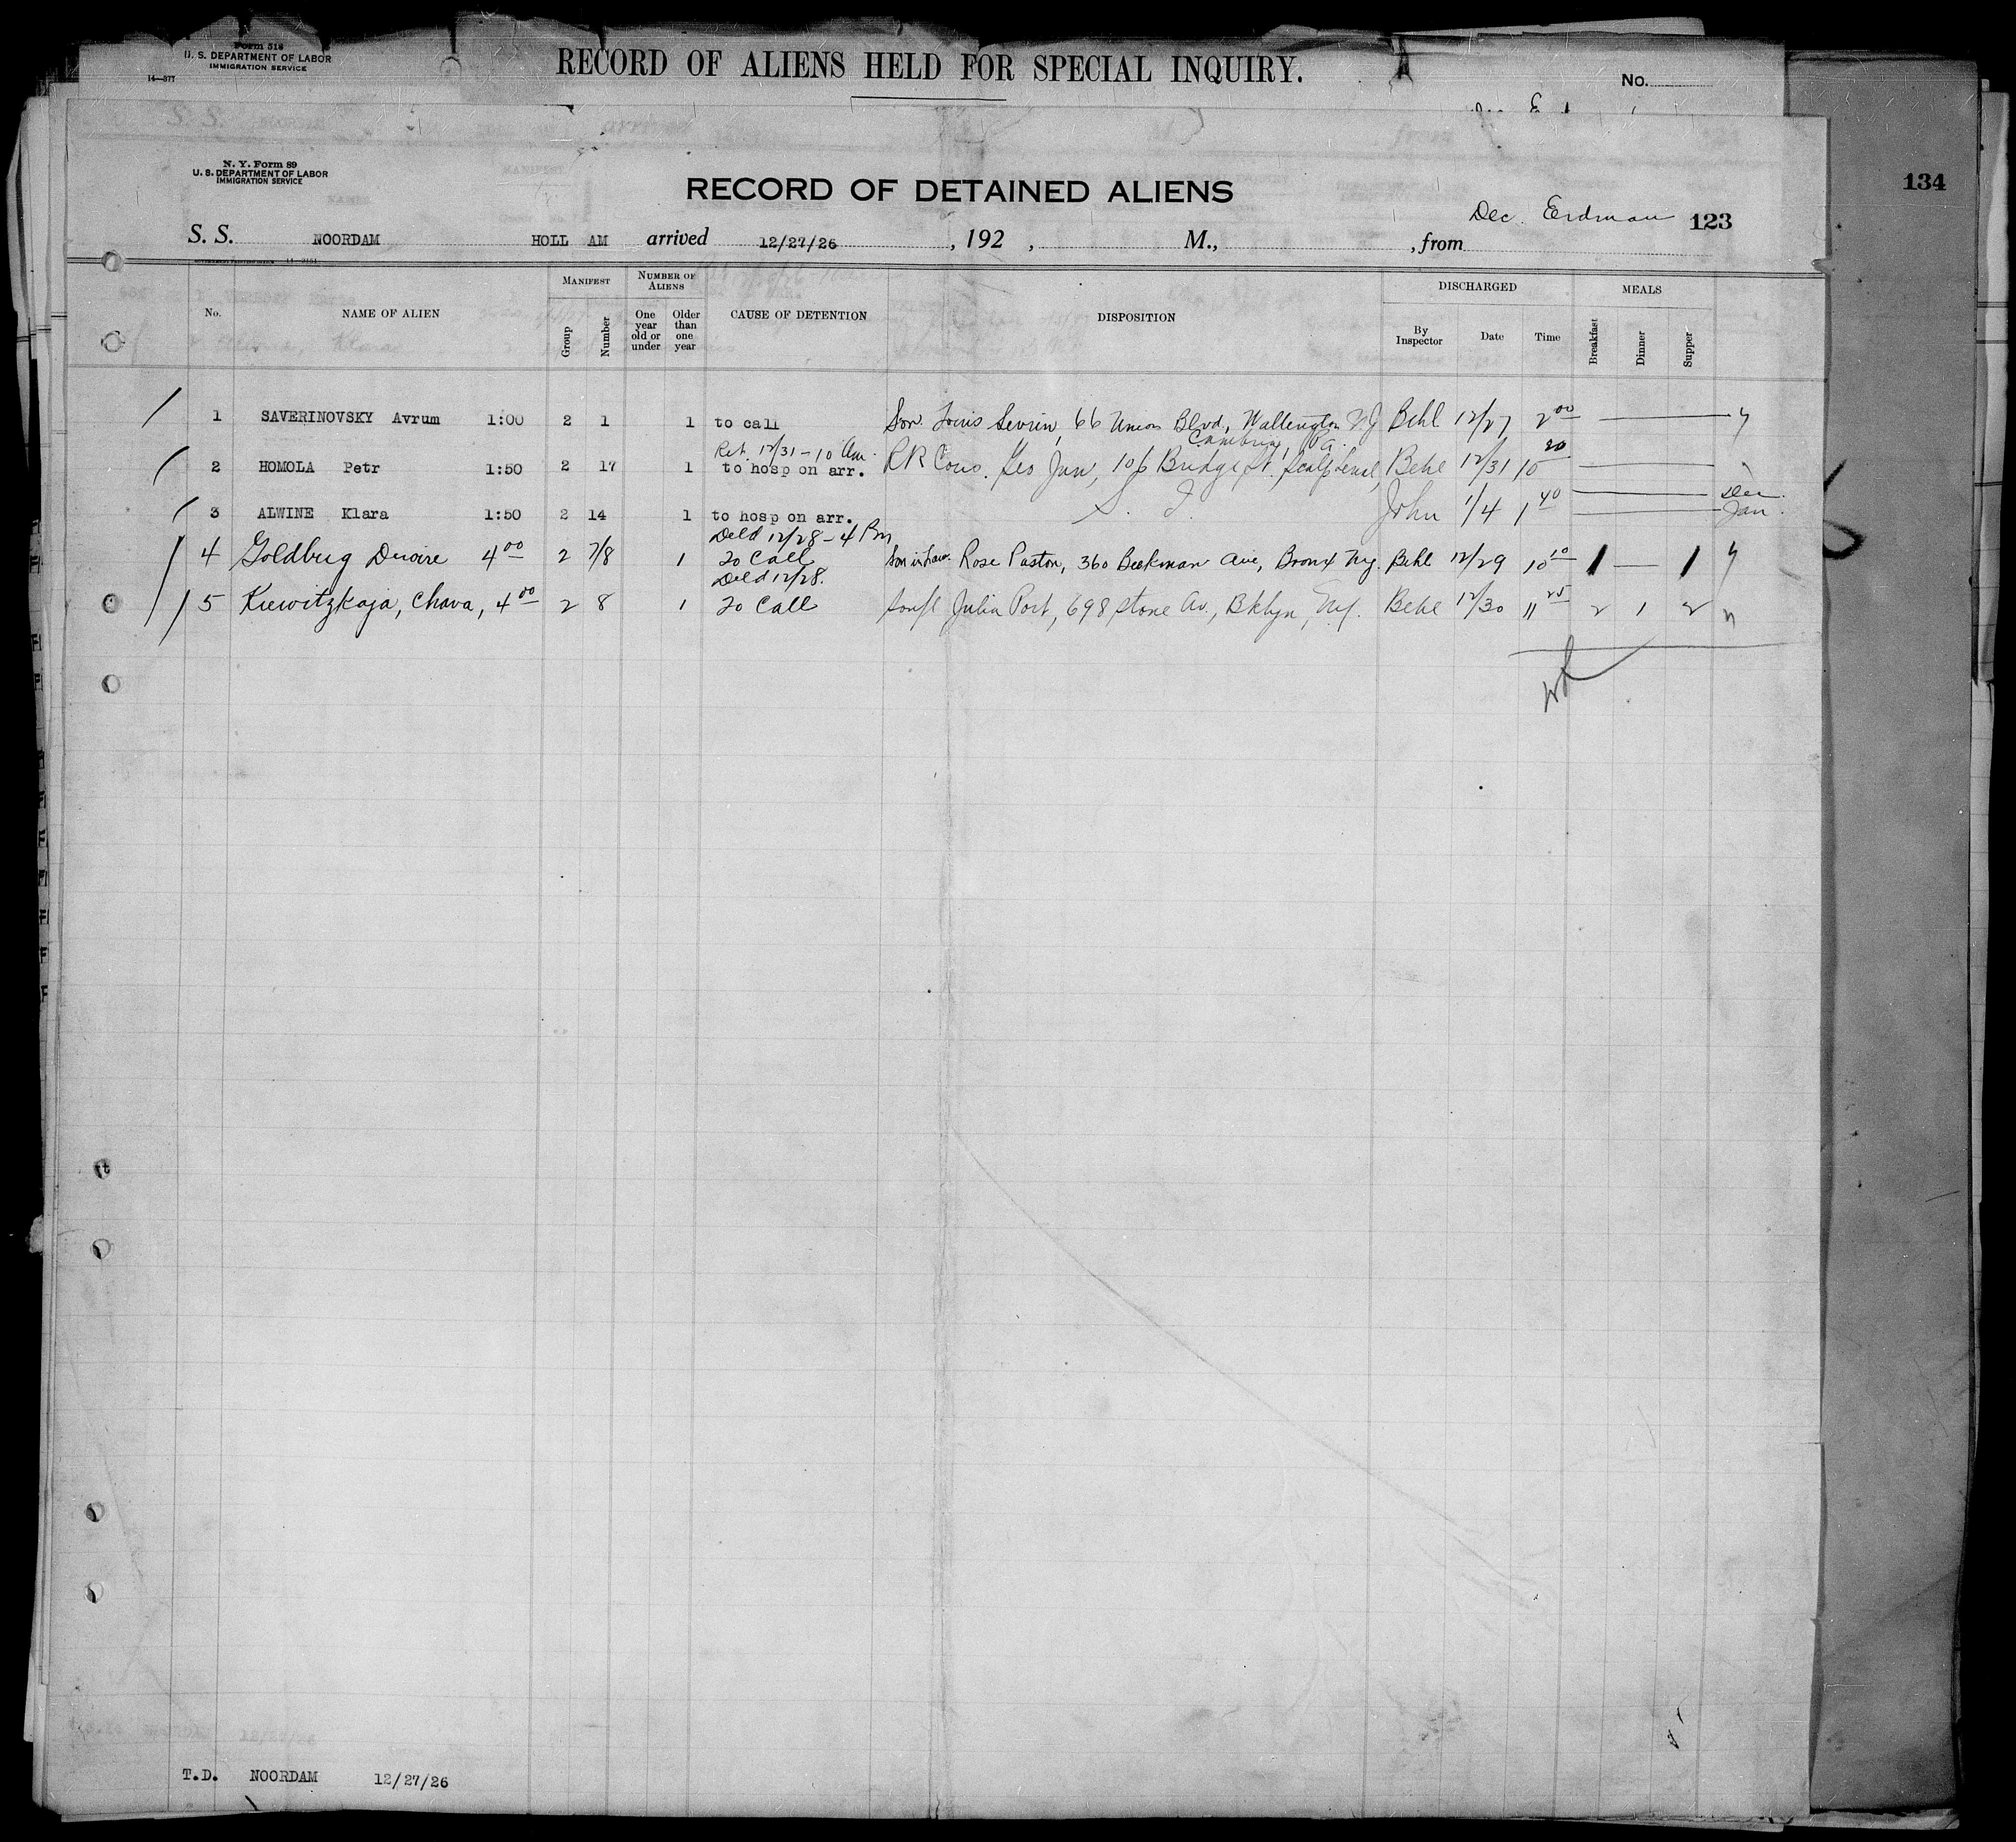 Form 518
U. S. DEPARTMENT OF LABOR
IMMIGRATION SERVICE
14—877
RECORD OF ALIENS HELD FOR SPECIAL INQUIRY.
No.
134
N. Y. Form 89
U. S. DEPARTMENT OF LABOR
IMMIGRATION SERVICE
RECORD OF DETAINED ALIENS
Dec. Erdman 123
S. S. NOORDAM HOLL AM arrived 12/27/26, 192 , M., , from
No. NAME OF ALIEN MANIFEST Group Number NUMBER OF ALIENS One year old or under Older than one year CAUSE OF DETENTION DISPOSITION DISCHARGED By Inspector Date Time MEALS Breakfast Dinner Supper
1 SAVERINOVSKY Avrum 1:00 2 1 1 to call Son. Louis Sevrin, 66 Union Blvd, Wallington NJ Behl 12/27 2 00
Ret 12/31 - 10 Am. Cambria, Pa.
2 HOMOLA Petr 1:50 2 17 1 to hosp on arr. RR Cous. Geo Jan, 106 Bridge St. Scalp Level, Behl 12/31 10 20
3 ALWINE Klara 1:50 2 14 1 to hosp on arr. S. I. John 1/4 1 40 Dec. Jan.
Deld 12/28 - 4 Pm
4 Goldbrug Dwoire 4 00 2 7/8 1 To Call Son in law. Rose Paston, 360 Beekman Ave, Bronx Ny. Behl 12/29 10 10 1 — 1
Deld 12/28.
5 Kiewitzkaja, Chava, 4 00 2 8 1 To Call Julia Port, 698 Stone Av., Bklyn, Ny. Behl 12/30 11 25 2 1 2
T.D. NOORDAM 12/27/26